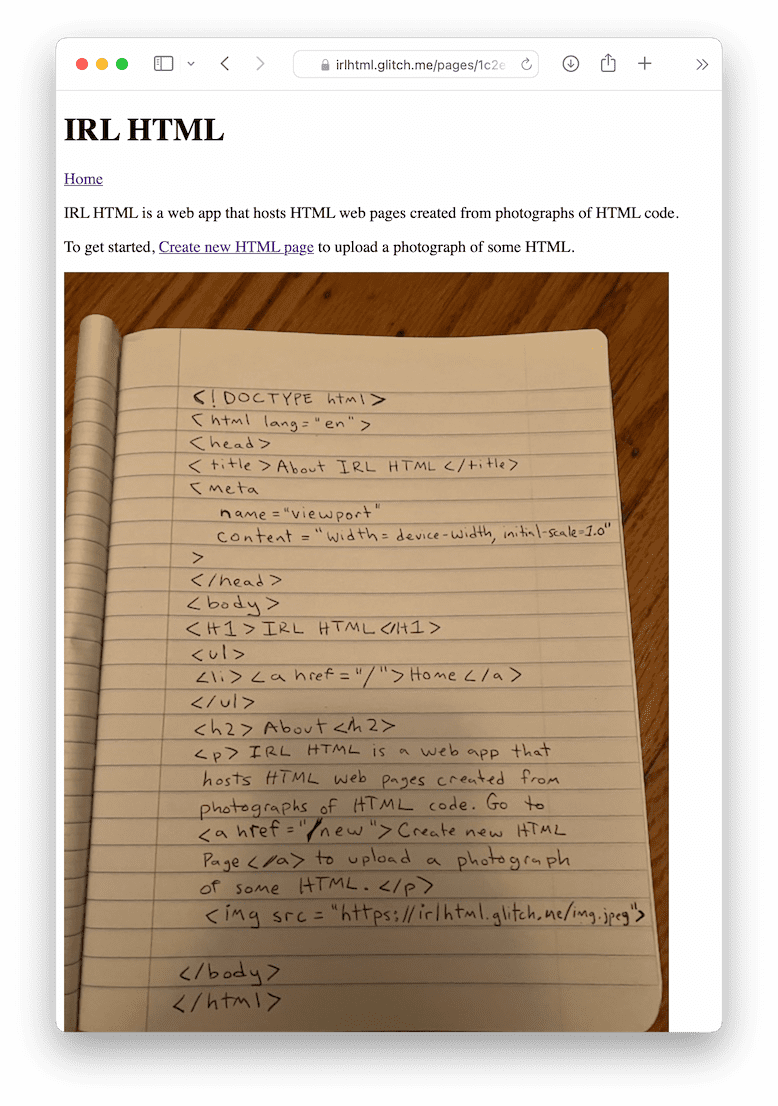 irlhtml.glitch.me/pages/1c2e
IRL HTML
Home
IRL HTML is a web app that hosts HTML web pages created from photographs of HTML code.
To get started, Create new HTML page to upload a photograph of some HTML.
<!DOCTYPE html>
<html lang="en">
<head>
<title>About IRL HTML</title>
<meta
name="viewport"
content="width=device-width, initial-scale=1.0"
>
</head>
<body>
<H1>IRL HTML</H1>
<ul>
<li><a href="/">Home</a>
</ul>
<h2>About</h2>
<p>IRL HTML is a web app that
hosts HTML web pages created from
photographs of HTML code. Go to
<a href="/new">Create new HTML
Page</a> to upload a photograph
of some HTML.</p>
<img src="https://irlhtml.glitch.me/img.jpeg">
</body>
</html>